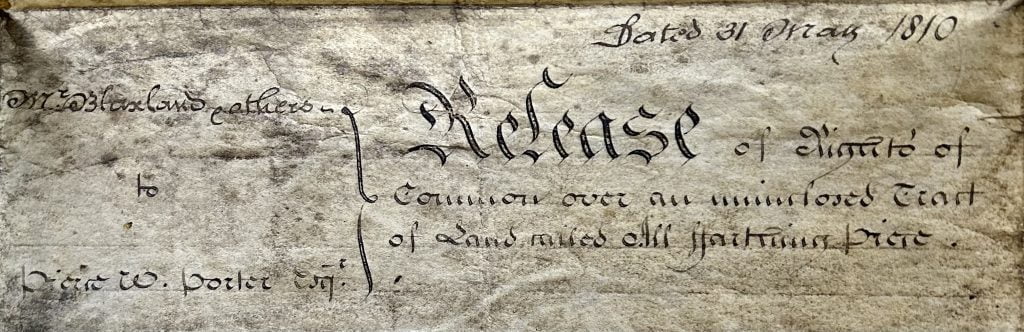 Dated 31 May 1810
Mr. Blaxland & others
to
W. Porter Esqr.
Release of Rights of
Common over an uninclosed Tract
of Land called All ffarthing Piece.